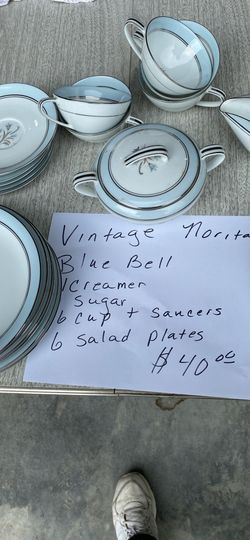 Vintage Norita
Blue Bell
1 Creamer
Sugar
6 cup + saucers
6 salad plates
$ 40.00